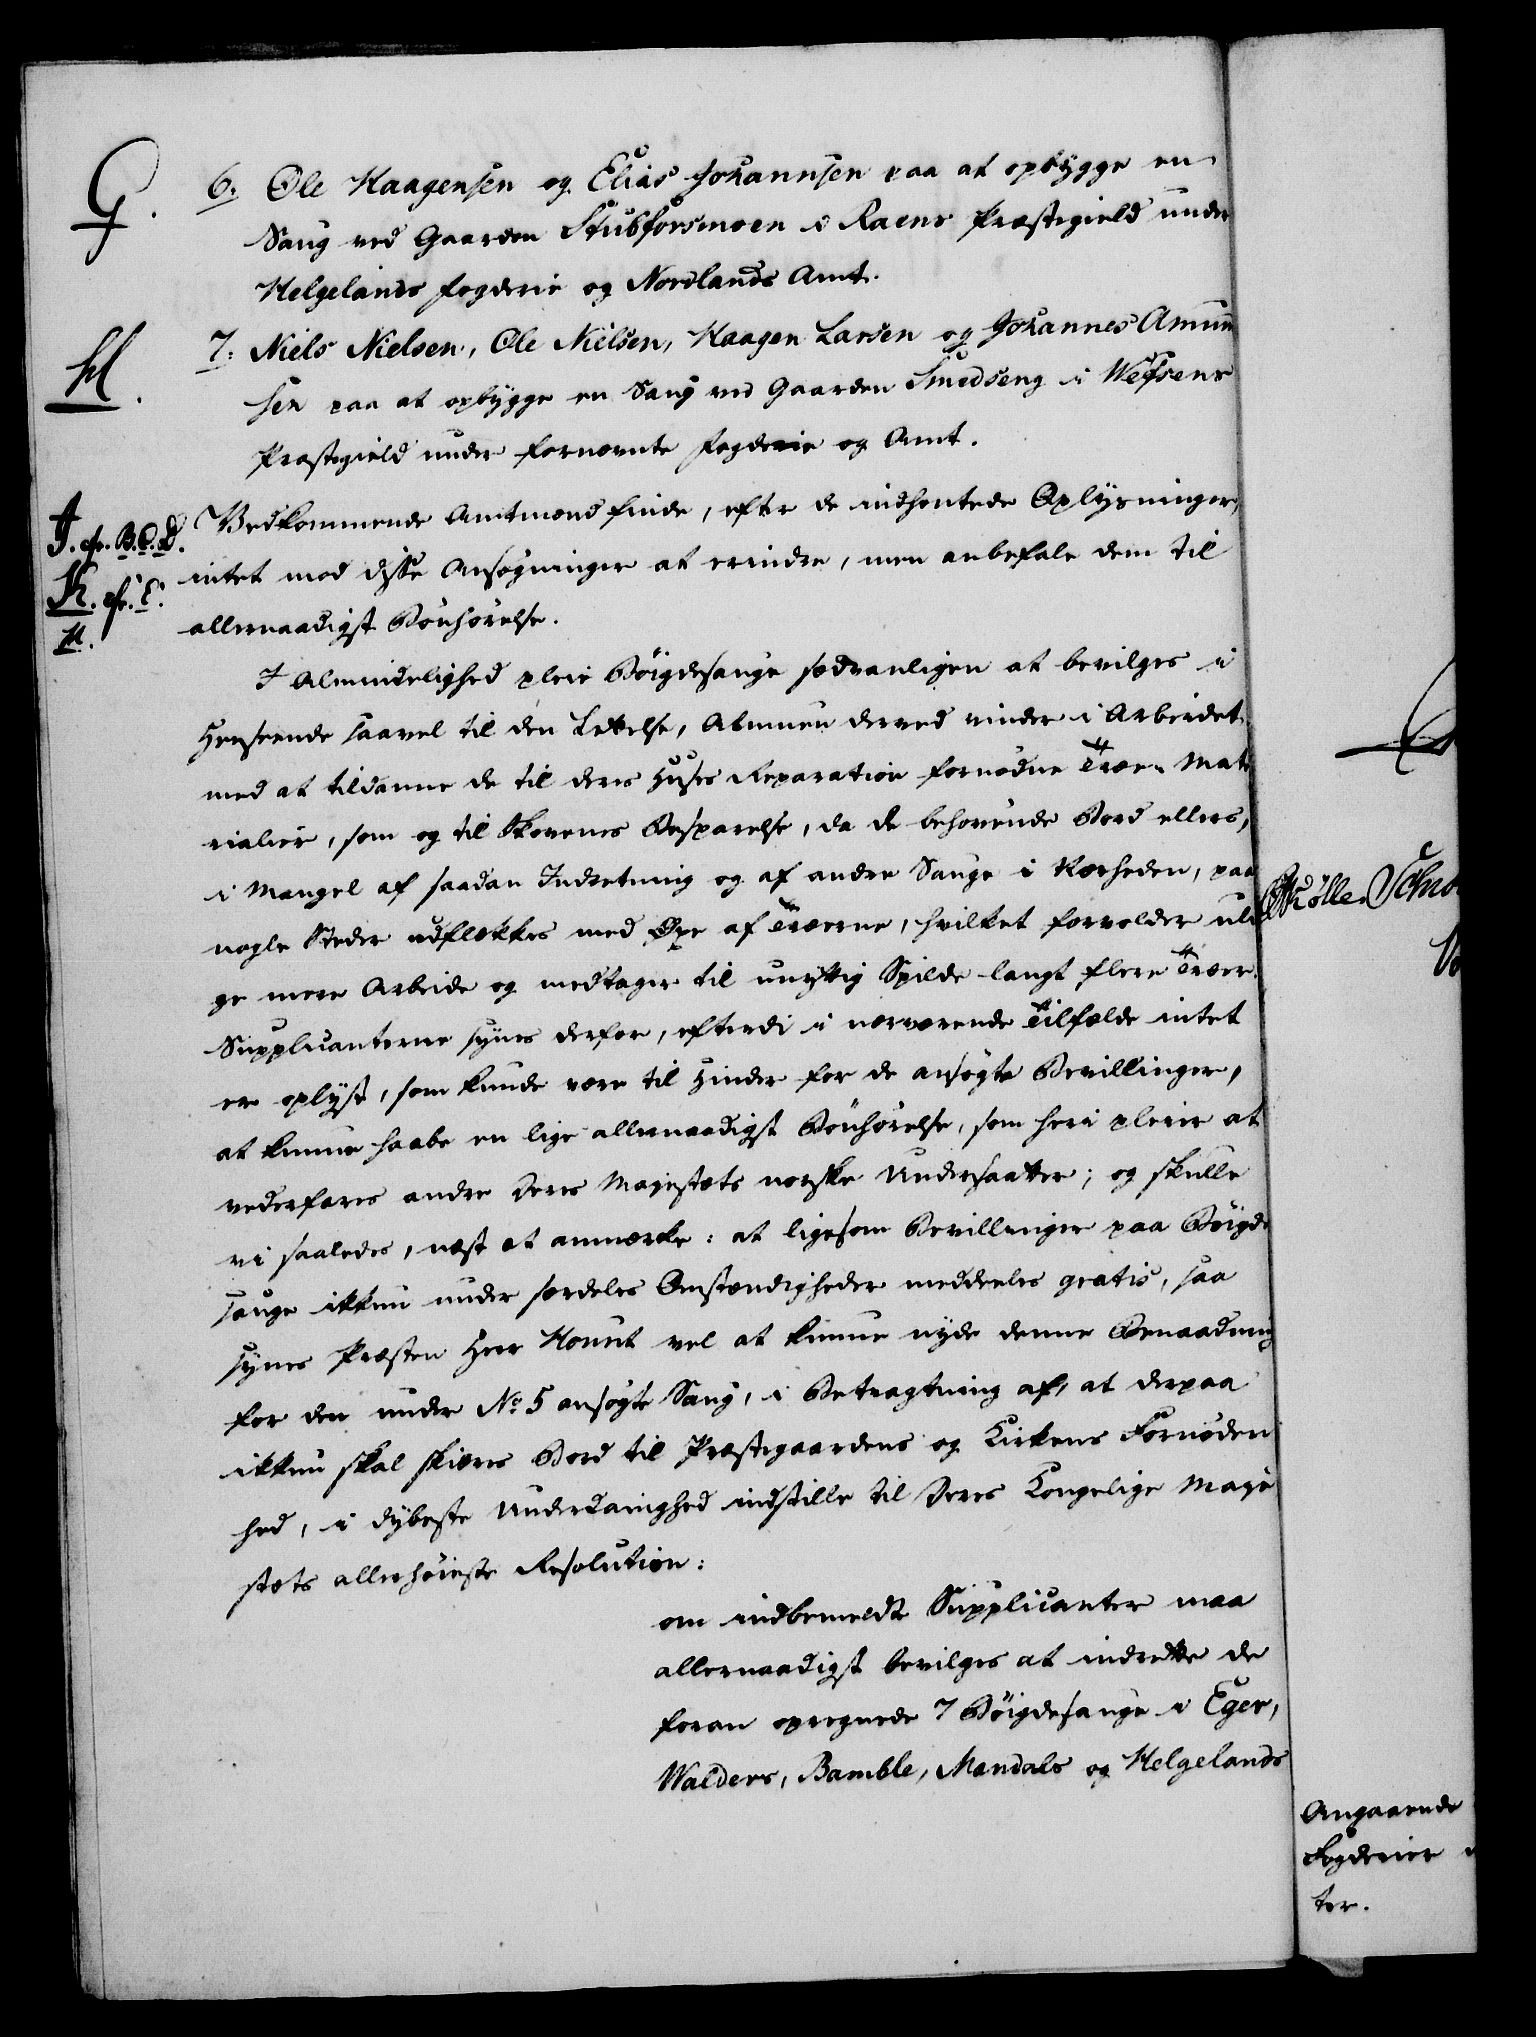 G.
6. Ole Haagensen og Elias Johannsen paa at opbygge en
Saug ved Gaarden Stubforsmoen i Raens Præstegield under
Helgelands Fogderie og Nordlands Amt.
H.
7. Niels Nielsen, Ole Nielsen, Haagen Larsen og Johannes Amun
sen paa at opbygge en Saug ved Gaarden Smedseng i Wefsens
Præstegield under fornævnte Fogderie og Amt.
I. cfr. B.C.D.
K. cfr. E.
M.
Vedkommende Amtmænd finde, efter de indhentede Oplysninger,
intet mod disse Ansøgninger at erindre, men anbefale dem til
allernaadigst Bønhørelse.
I Almindelighed pleie Bøigdesauge sædvanligen at bevilges i
Henseende saavel til den Lettelse, Almuen derved vinder i Arbeidet
med at tildanne de til deres Huses Reparation fornødne Træe- Mate
rialier, som og til Skovenes Besparelse, da de behøvende Bord ellers,
i Mangel af saadan Indretning og af andre Sauge i Nærheden, paa
nogle Steder udflækkes med Øxe af Træerne, hvilket forvolder uli
ge mere Arbeide og medtager til unyttig Spilde langt flere Træer.
Supplicanterne synes derfor, efterdi i nærværende Tilfælde intet
er oplyst, som kunde være til Hinder for de ansøgte Bevillinger,
at kunne haabe en lige allernaadigst Bønhørelse, som heri pleier at
vederfares andre Deres Majestæts norske Undersaatter; og skulle
vi saaledes, næst at anmærke: at ligesom Bevillinger paa Bøigde
sauge ikkun under særdeles Omstændigheder meddeeles gratis, saa
synes Præsten Herr Hount vel at kunne nyde denne Benaadning
for den under No 5 ansøgte Saug, i Betragtning af, at derpaa
ikkun skal skiæres Bord til Præstegaardens og Kirkens Fornøden
hed, i dybeste Underdanighed indstille til Deres Kongelige Maje
stæts allerhøieste Resolution:
om indbemeldte Supplicanter maa
allernaadigst bevilges at indrette de
foran opregnede 7 Bøigdesauge i Eger,
Walders, Bamble, Mandals og Helgelands
Angaaende
Fogderier
ter.